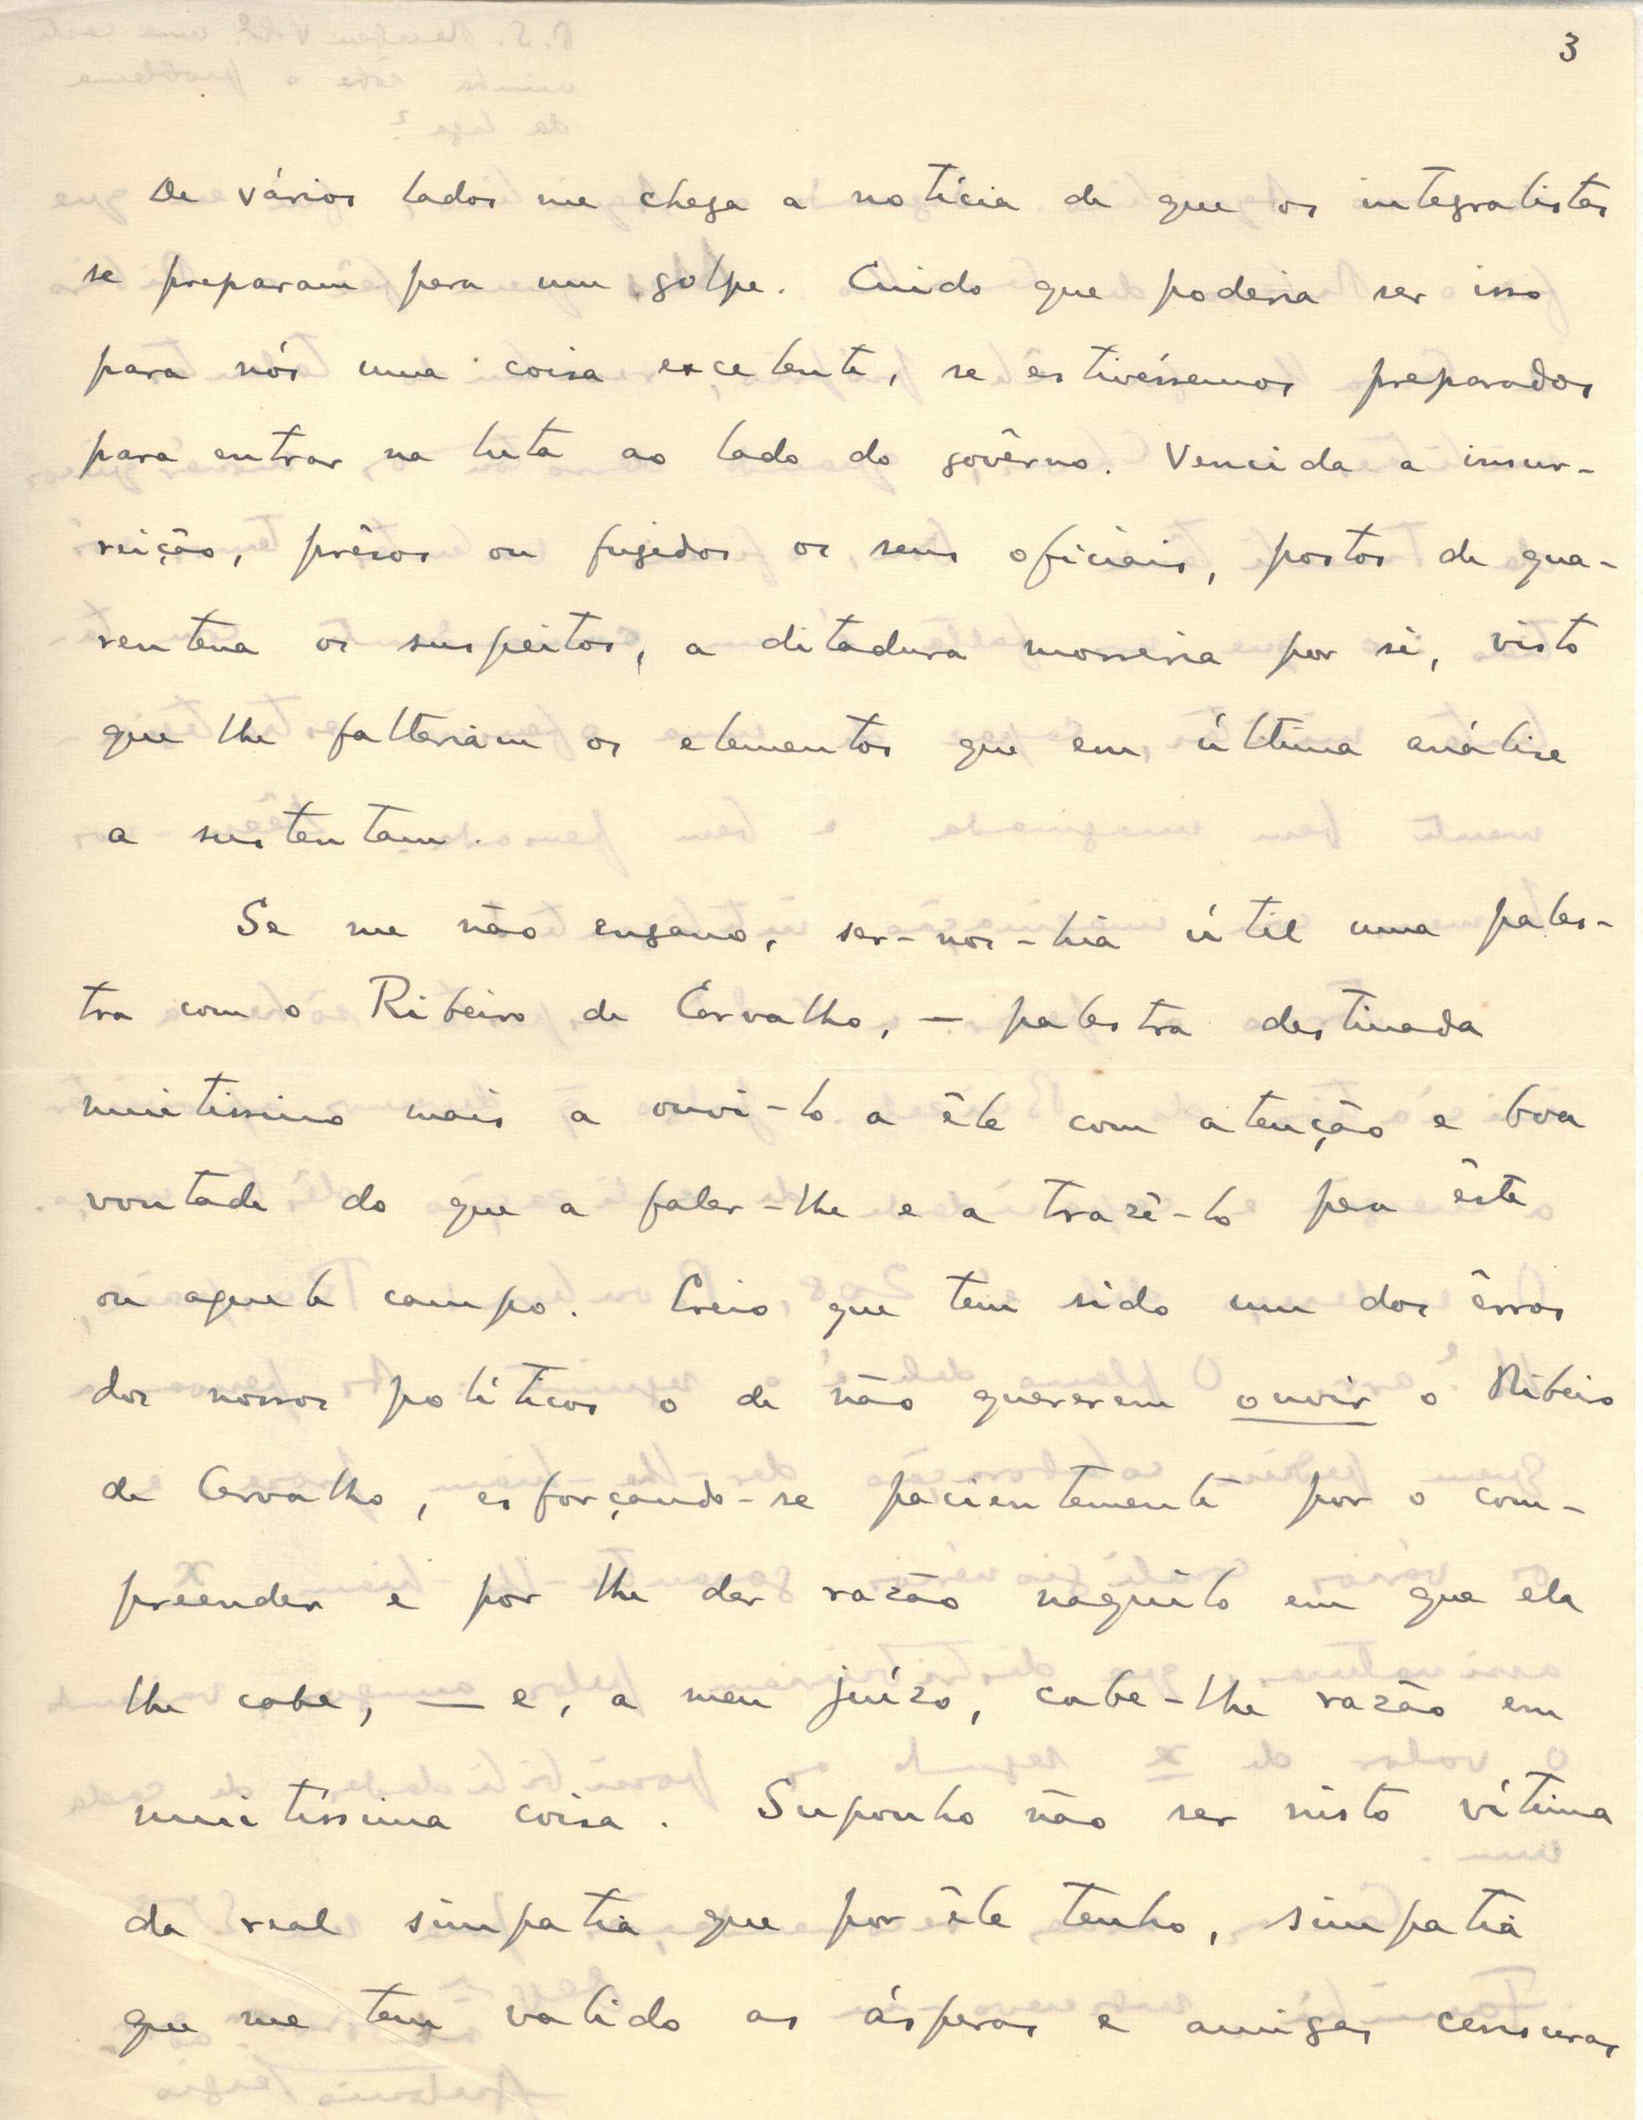 3
De vários lados me chega a notícia de que os integralistas
se preparam para um golpe. Cuido que poderia ser isso
para nós uma coisa excelente, se estivéssemos preparados
para entrar na luta ao lado do govêrno. Vencida a insur-
reição, prêsos ou fugidos os seus oficiais, postos de qua-
rentena os suspeitos, a ditadura morreria por si, visto
que lhe faltariam os elementos que em última análise
a sustentam.
Se me não engano, ser-nos-hia útil uma pales-
tra com o Ribeiro de Carvalho, — palestra destinada
muitissimo mais a ouvi-lo a êle com atenção e boa
vontade do que a falar-lhe e a trazê-lo para êste
ou aquele campo. Creio que tem sido um dos êrros
dos nossos políticos o de não quererem ouvir o Ribeiro
de Carvalho, esforçando-se pacientemente por o com-
preender e por lhe dar razão naquilo em que ela
lhe cabe, — e, a meu juízo, cabe-lhe razão em
muitíssima coisa. Suponho não ser nisto vítima
da real simpatia que por êle tenho, simpatia
que me tem valido as ásperas e amigas censuras